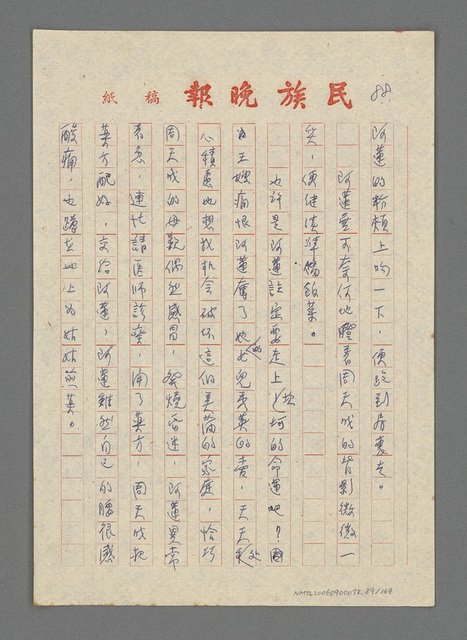 民族晚報 稿紙
88.
阿蓮的粉頰上吻一下，便跑到房裏去。
阿蓮無可奈何地瞪着周天成的背影微微一
笑，便繼續準備飯菜。
也許是阿蓮註定要走上坎坷的命運吧？因
為王嫂痛恨阿蓮奪了她女兒秀英的愛，天天處
心積慮地想找機會破坏這個美滿的家庭，恰巧
周天成的母親偶然感冒，發燒昏迷，阿蓮異常
着急，連忙請医師診察，開了藥方，周天成把
藥方配好，交給阿蓮，阿蓮雖然自己的腰很感
酸痛，也蹲在地上為姑姑煎藥。
NMTL20060900072.89/169